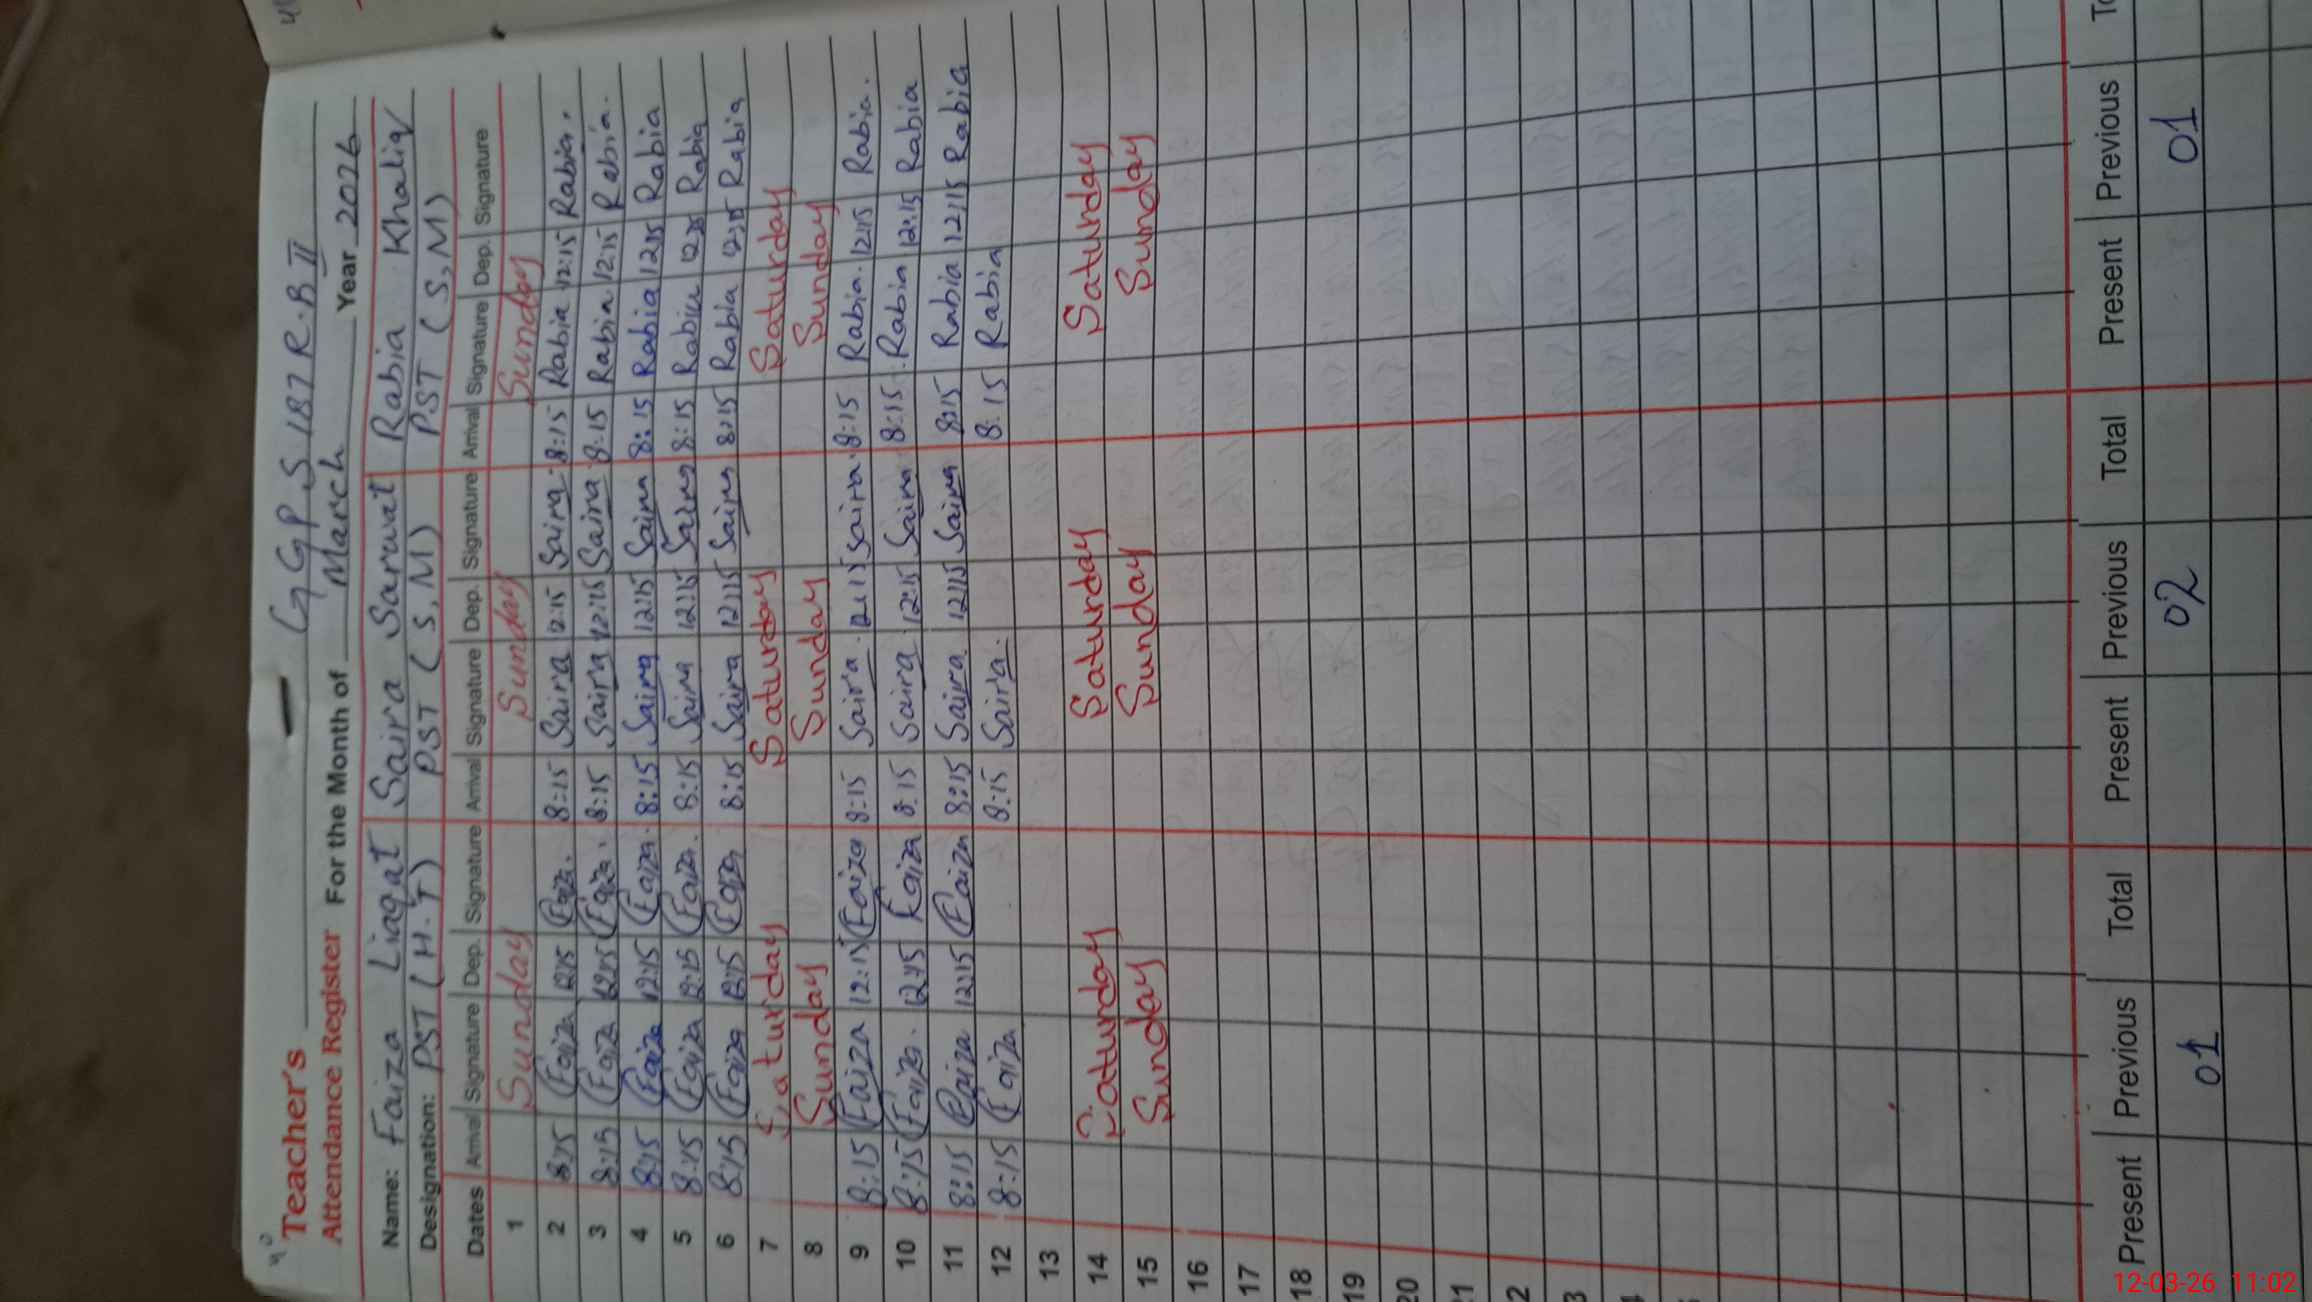 Teacher's GGPS 187 R.B II
Attendance Register For the Month of March Year 2026
Name: Faiza Liaqat Saira Sarwat Rabia Khaliq
Designation: PST (H.T) PST (S,M) PST (S,M)
Dates Arrival Signature Dep. Signature Arrival Signature Dep. Signature Arrival Signature Dep. Signature
1 Sunday Sunday Sunday
2 8:15 Faiza 12:15 Faiza. 8:15 Saira 12:15 Saira. 8:15 Rabia 12:15 Rabia.
3 8:15 Faiza 12:15 Faiza. 8:15 Saira 12:15 Saira. 8:15 Rabia. 12:15 Rabia.
4 8:15 Faiza 12:15 Faiza. 8:15 Saira 12:15 Saira 8:15 Rabia 12:15 Rabia
5 8:15 Faiza 12:15 Faiza. 8:15 Saira 12:15 Saira 8:15 Rabia 12:15 Rabia
6 8:15 Faiza 12:15 Faiza 8:15 Saira 12:15 Saira 8:15 Rabia 12:15 Rabia
7 Saturday Saturday Saturday
8 Sunday Sunday Sunday
9 8:15 Faiza 12:15 Faiza 8:15 Saira. 12:15 Saira. 8:15 Rabia. 12:15 Rabia.
10 8:15 Faiza. 12:15 Faiza 8:15 Saira. 12:15 Saira. 8:15. Rabia 12:15 Rabia
11 8:15 Faiza 12:15 Faiza 8:15 Saira 12:15 Saira 8:15 Rabia 12:15 Rabia
12 8:15 Faiza 8:15 Saira. 8:15 Rabia
13
14 Saturday Saturday Saturday
15 Sunday Sunday Sunday
16
17
18
19
20
Present Previous Total Present Previous Total Present Previous
01 02 01
12-03-26 11:02